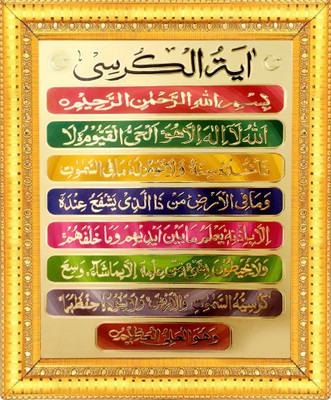 اية الكرسى
بسم الله الرحمن الرحيم
الله لا اله الا هو الحى القيوم لا
تأخذه سنة ولا نوم له ما فى السموت
وما فى الأرض من ذا الذى يشفع عنده
إلا بإذنه يعلم ما بين ايديهم وما خلفهم
ولا يحيطون بشىء من علمه إلا بما شاء وسع
كرسيه السموت والأرض ولا يؤده حفظهما
وهو العلى العظيم